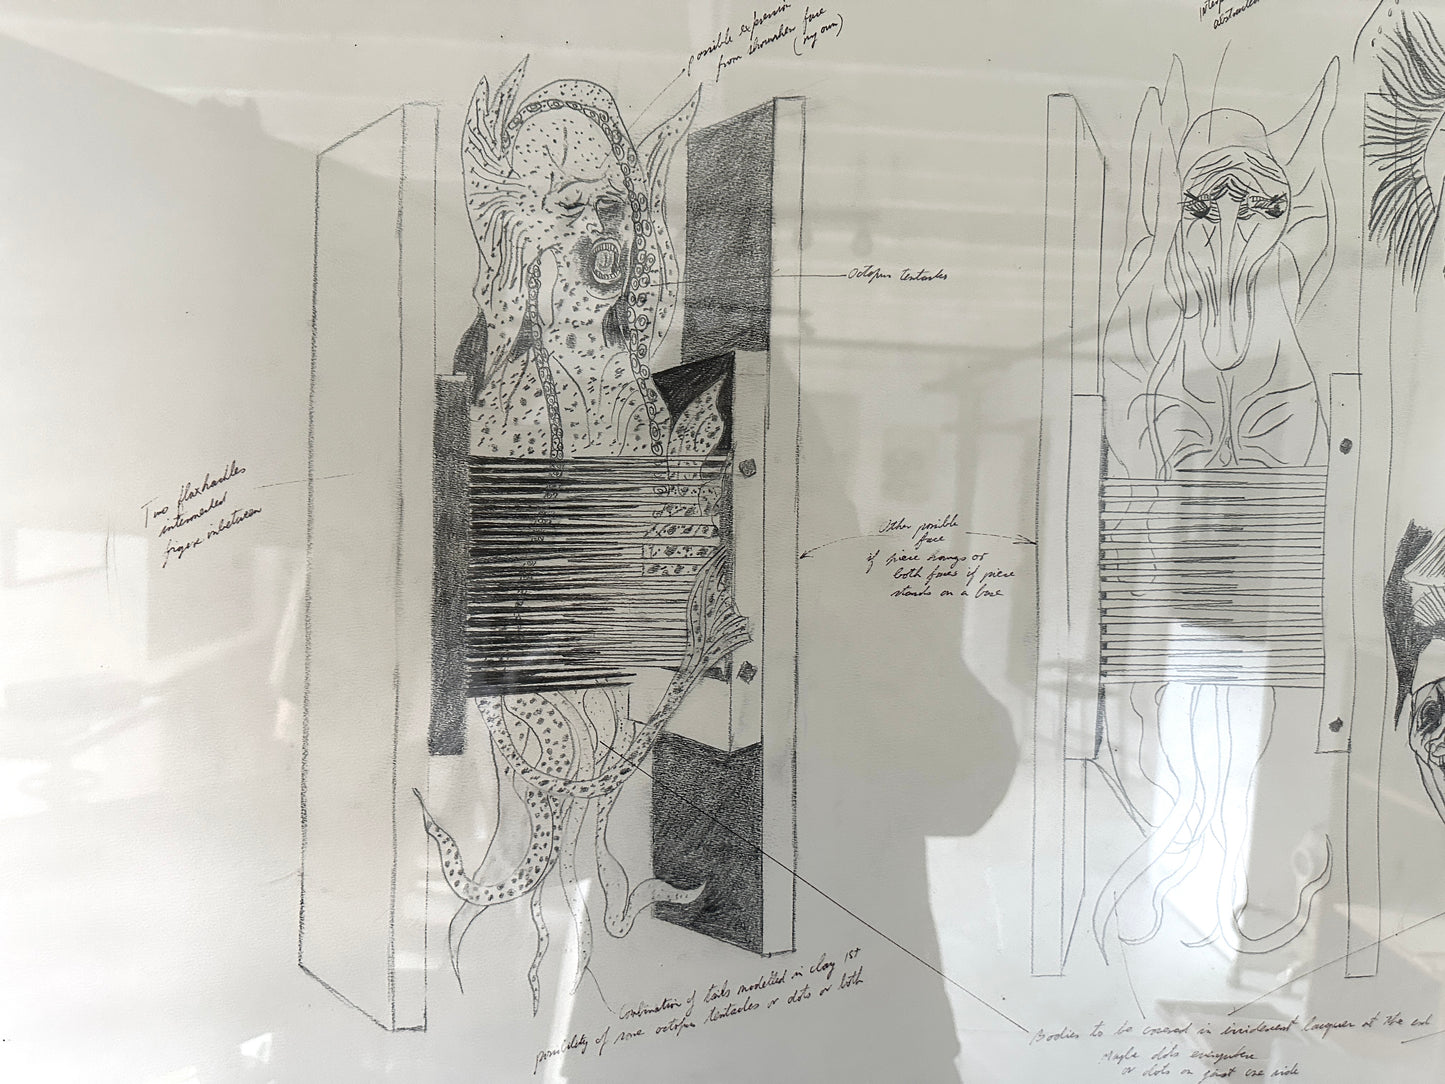 possible expression
from thrower face
(my own)
abstracted
Octopus tentacles
Two flaxhackles
interconnected
figure inbetween
Other possible
face
if piece hangs or
both faces if piece
stands on a base
Combination of tails modelled in clay 1st
possibility of some octopus tentacles or dots or both
Bodies to be covered in irridescent lacquer at the end
Maybe dots everywhere
or dots on just one side